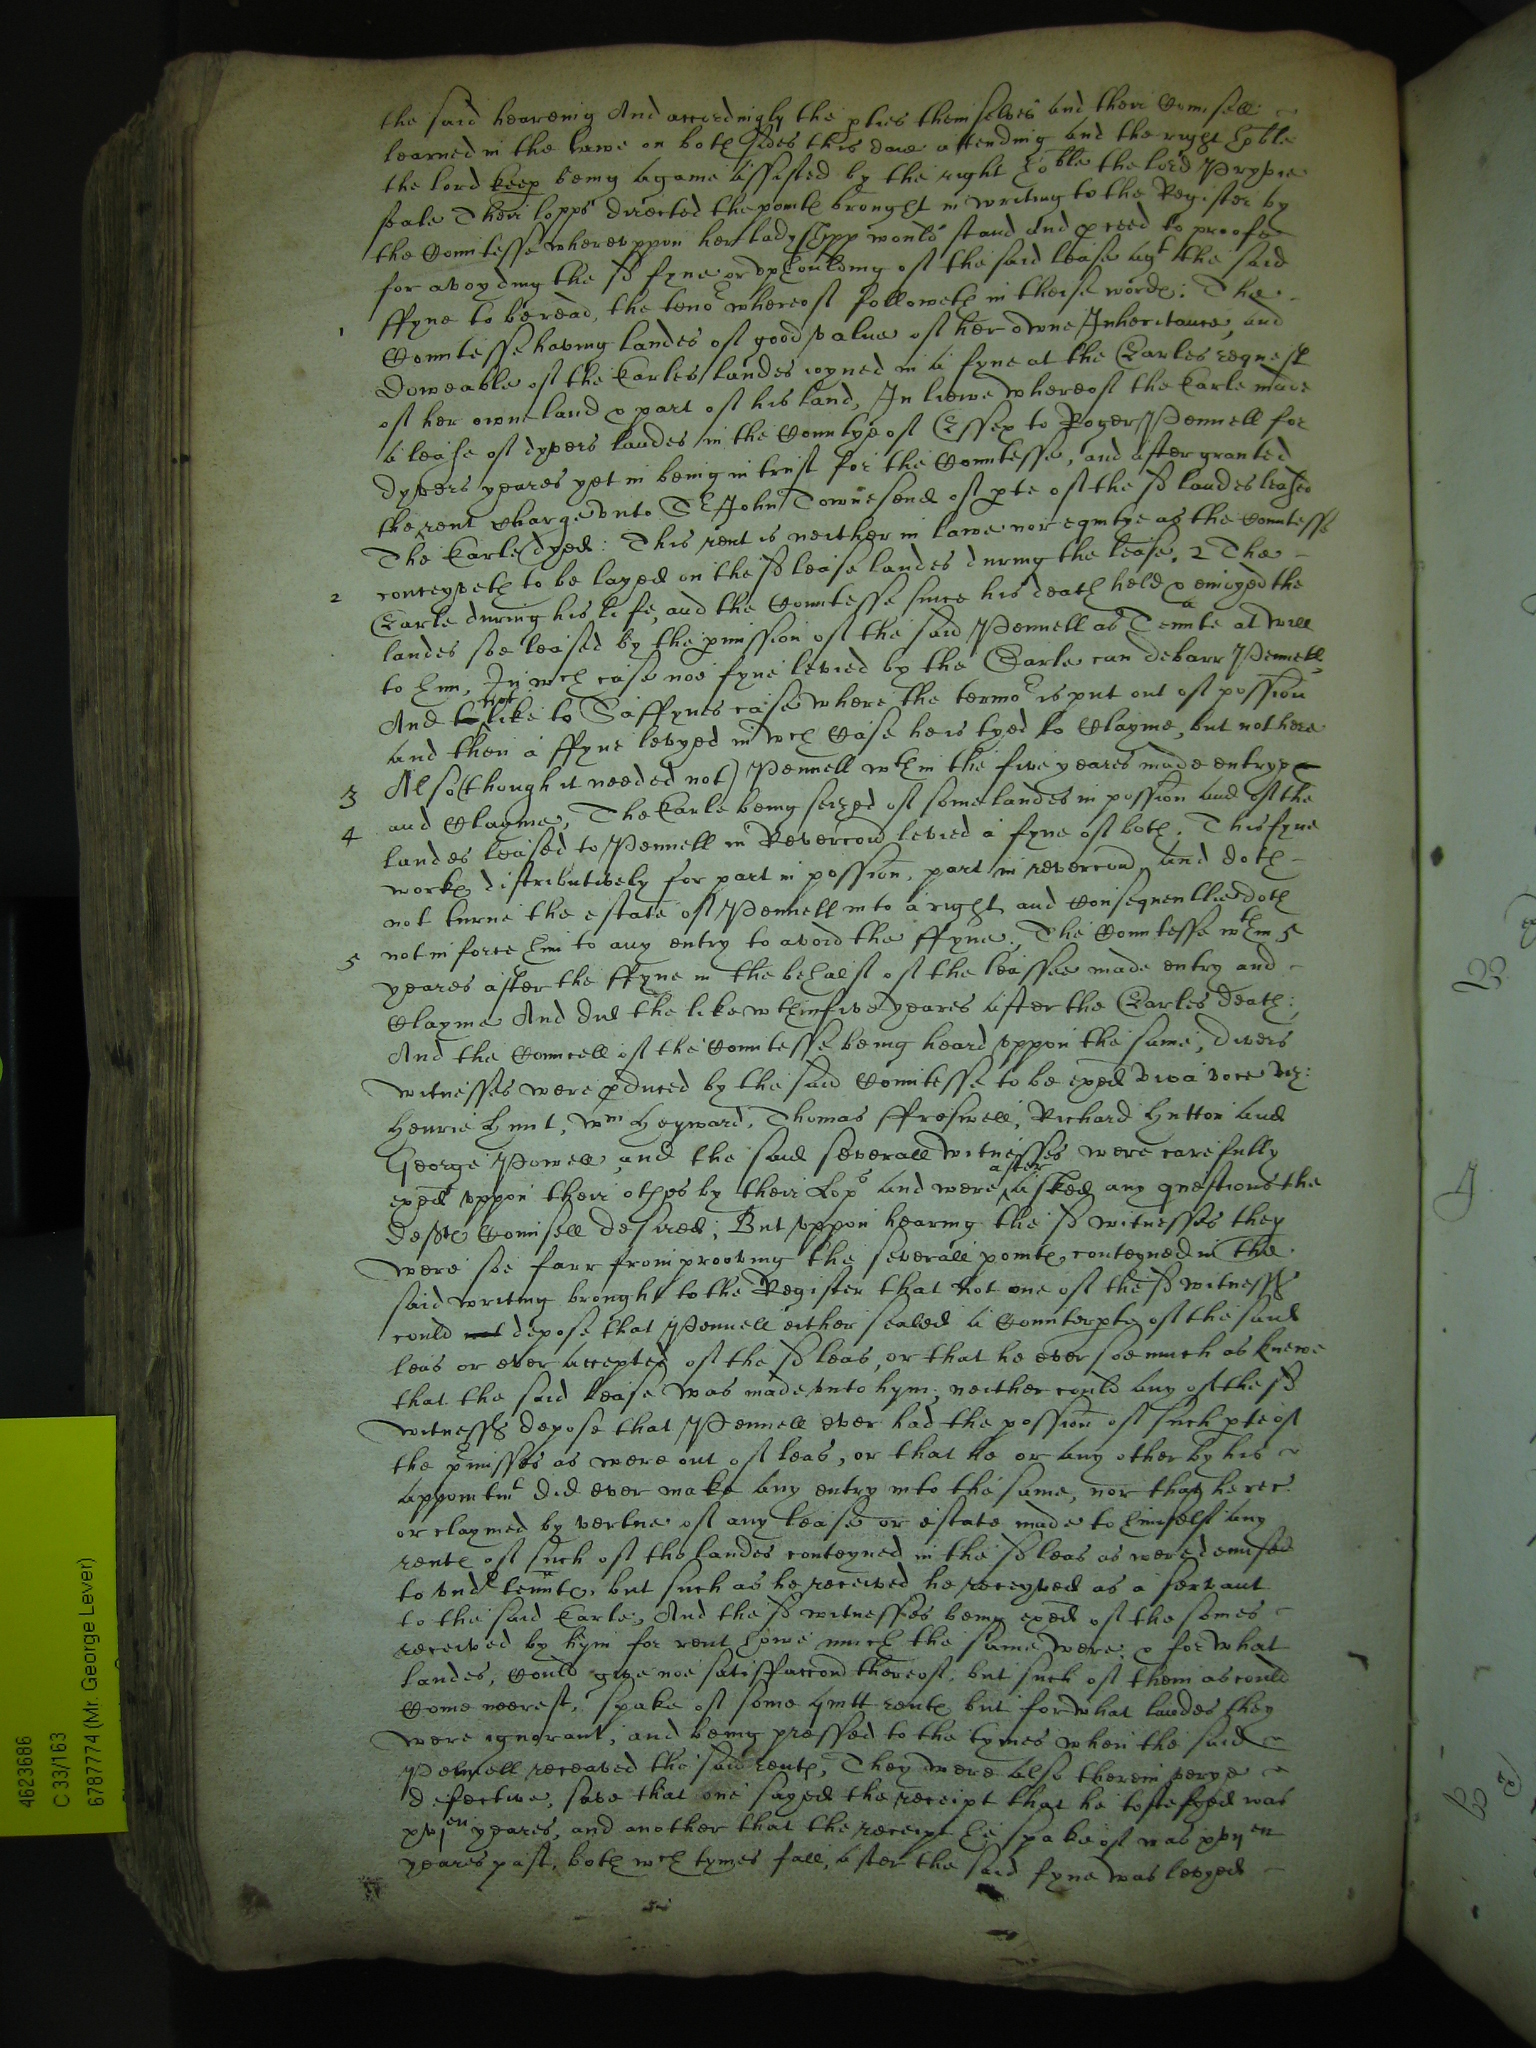 the said hearenig And accordingly the pties themselves and their Counsell
learned in the lawe on both sides this daie attending and the right hoble
the lord keep being againe assisted by the right hoble the lord Pryvie
seale Their lopps directed the pointes brought in writing to the Register by
the Countesse whereuppon her ladyshipp would stand and pceed to proofe
for avoyding the sd fyne or upholding of the said lease agt the said
ffyne to be read, the tenor whereof followeth in theise wordes: The
1 Countesse having landes of good value of her owne Inheritance, and
Doweable of the Earles landes ioyned in a fyne at the Earles request
of her owne land & part of his land, In liewe whereof the Earle made
a lease of dyvers landes in the Countye of Essex to Roger Pennell for
dyvers yeares yet in being in trust for the Countesse, and after granted
the rent charge unto Sr John Townesend of pte of the sd landes leased
The Earle dyed: This rent is neither in lawe nor equitye as the Countesse
conceyveth to be layed on the sd lease landes during the lease. 2 The
2 Earle during his life, and the Countesse since his death held & enioyed the
landes soe leased by the pmission of the said Pennell as Tennte at will
to him, In wch case noe fyne levied by the Earle can debarr Pennell
And not like to Saffynes case where the termor is put out of possion
and then a ffyne levyed in wch Case he is tyed to Clayme, but not here
3 Also (though it needed not) Pennell wthin the five yeares made entrye
4 and Clayme, The Earle being seized of some landes in possion and of the
landes leased to Pennell in Revercon levied a fyne of both. This fyne
workes distributively for part in possion, part in revercon, and doth
not turne the estate of Pennell into a right and Consequentlie doth
not inforce him to any entry to avoid the ffyne. The Countesse wthin 5
5 yeares after the ffyne in the behalf of the leassee made entry and
Clayme And did the like wthin five yeares after the Earles death;
And the Councell of the Countesse being heard uppon the same, divers
witnesses were pduced by the said Countesse to be exed viva voce viz:
Henrie Hunt, Wm Heyward, Thomas ffreswell, Richard Hutton and
George Powell, and the said severall witnesses were carefully
exed uppon their othes by their Lops and were after asked any questions the
deftes Counsell desired; But uppon hearing the sd witnesses they
were soe farr from prooving the severall pointes conteyned in the
said writing brought to the Register that not one of the sd witnesses
could depose that Pennell either sealed a Counterpte of the said
leas or ever accepted of the sd leas, or that he ever soe much as knewe
that the said lease was made unto hym, neither could any of the sd
witnesses depose that Pennell ever had the possion of such pte of
the pmisses as were out of leas, or that he or any other by his
appointmt did ever make any entry into the same, nor that he rec
or claymed by vertue of any lease or estate made to himself any
rentes of such of the landes conteyned in the sd leas as were demised
to undr tenntes, but such as he received he receyved as a servant
to the said Earle, And the sd witnesses being exed of the somes
received by hym for rent howe much the same were & for what
landes, Could give noe satisfaccon thereof, but such of them as could
Come neerest, spake of some quitt rentes but for what landes they
were ignorant, and being pressed to the tymes when the said
Pennell receaved the said rentes, They were also therein verye
defective, save that one sayed the receipt that he testefyed was
xvjen yeares, and another that the receipt he spake of was xvijen
yeares past, both wch tymes fall, after the said fyne was levyed
4623686
C 33/163
6787774 (Mr. George Lever)